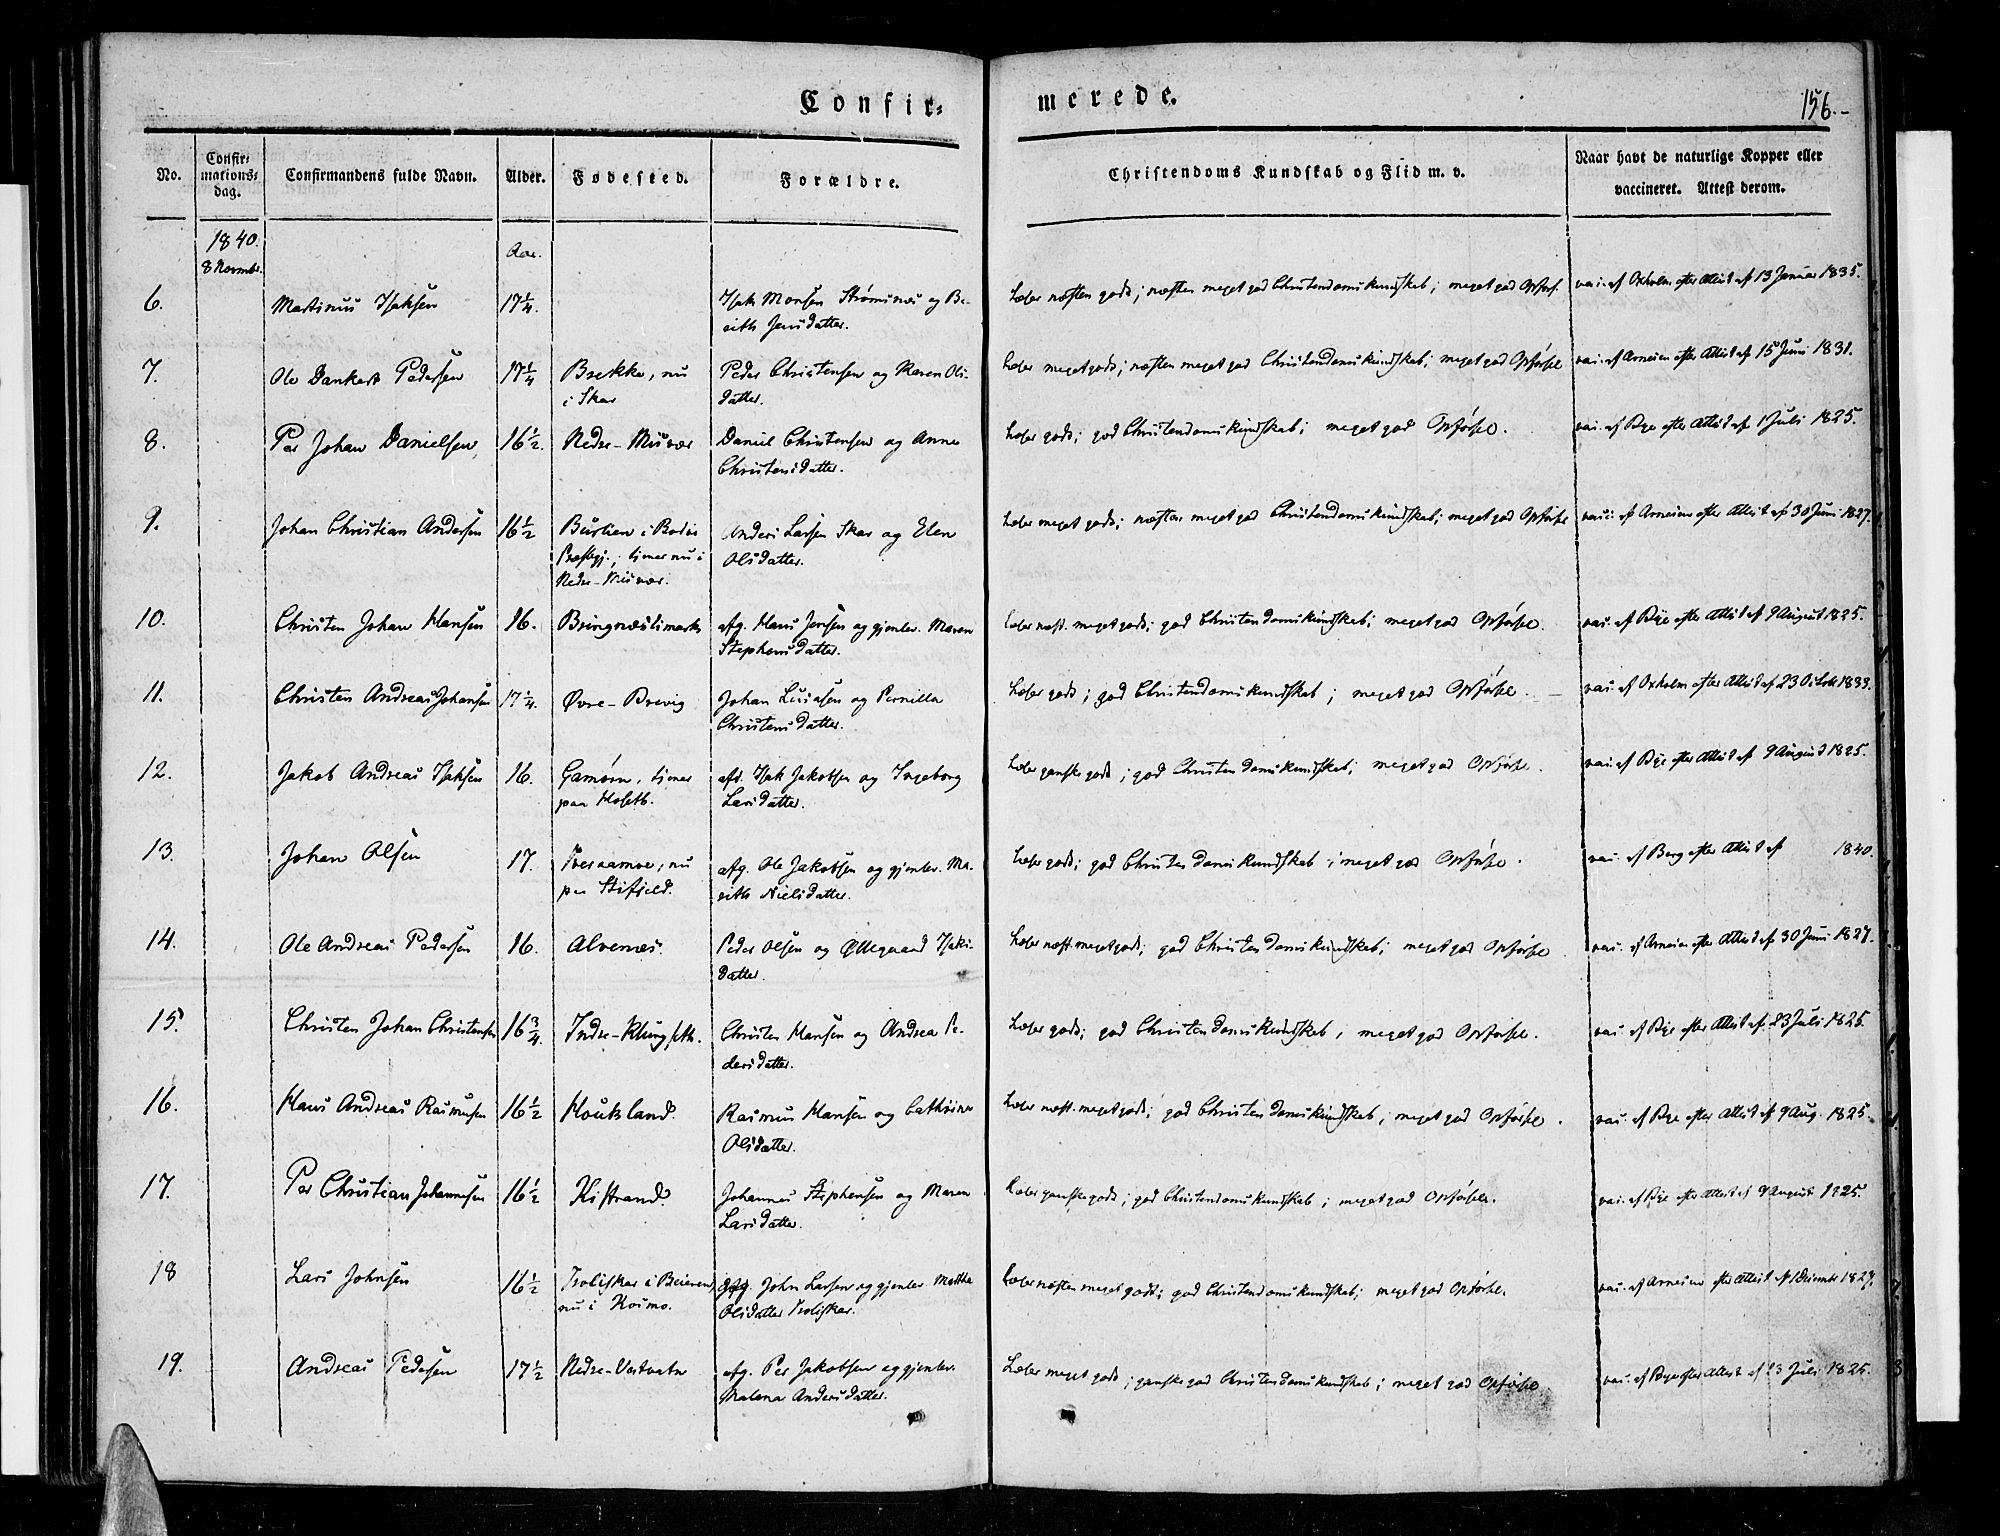 Confir=
merede.
156.-
No.
Confir=
mations=
dag.
Confirmandens fulde Navn.
Alder.
Fødested.
Forældre.
Christendoms Kundskab og Flid m. v.
Naar havt de naturlige Kopper eller
vaccineret. Attest derom.
1840.
8 Novmbr.
Aar.
6.
Martinus Isaksen
17 1/4.
Isak Monsen Strømsnes og Be-
rith Jensdatter.
Læser næsten godt; næsten meget god Christendomskundskab; meget god Opførs.
vac. af Oxholm efter Attest af 13 Januar 1835.
7.
Ole Dankert Pedersen
17 1/4
Brekke, nu
i Skar
Peder Christensen og Karen Ols-
datter.
Læser meget godt; næsten meget god Christendomskundskab; meget god Opførsel
vac. af Arnesen efter Attest af 15 Juni 1831.
8.
Per Johan Danielsen,
16 1/2.
Nedre-Misvær
Daniel Christensen og Anne
Christensdatter.
Læser godt; god Christendomskundskab; meget god Opførsel.
vac. af Bye efter Attest af 1 Juli 1825.
9.
Johan Christian Andersen
16 1/2
i Bodø
Præstegj.; tjener nu i
Nedre-Misvær.
Anders Larsen Skar og Elen
Olsdatter.
Læser meget godt; næsten meget god Christendomskundskab; meget god Opførsel
vacc. af Arnesen efter Attest af 30 Juni 1827.
10.
Christen Johan Hansen
16.
Bringnæslimarken
afg. Hans Jensen og gjenlev. Maren
Stephensdatter.
Læser næst. meget godt; god Christendomskundskab; meget god Opførsel.
vac. af Bye efter Attest af 9 August 1825.
11.
Christen Andreas Johansen
17 1/4.
Øvre-Brevig
Johan Lucasen og Pernilla
Christensdatter.
Læser godt; god Christendomskundskab; meget god Opførsel.
vac. af Oxholm efter Attest af 23 Octob 1833.
12.
Jakob Andreas Isaksen
16.
tjener
paa
afd. Isak Jakobsen og Ingeborg
Larsdatter.
Læser ganske godt; god Christendomskundskab; meget god Opførsel.
vac. af Bye efter Attest af 9 August 1825.
13.
Johan Olsen
17.
nu
paa Stifjeld.
afg. Ole Jakobsen og gjenlev. Ma-
rith Nielsdatter.
Læser godt; god Christendomskundskab; meget god Opførsel.
vac. af Berg efter Attest af 1840.
14.
Ole Andreas Pedersen
16.
Alvenæs.
Peder Olsen og Øllegaard Isaks-
datter.
Læser næst. meget godt; god Christendomskundskab; meget god Opførsel
vac. af Arnesen efter Attest af 30 Juni 1827.
15.
Christen Johan Christensen
16 3/4.
Indre-Klungseth.
Christen Hansen og Andrea Pe-
dersdatter.
Læser godt; god Christendomskundskab, meget god Opførsel.
vac. af Bye efter Attest af 23 Juli 1825.
16.
Hans Andreas Rasmusen
16 1/2
Koukland.
Rasmus Hansen og Cathrine
Olsdatter.
Læser næst. meget godt; god Christendomskundskab, meget god Opførsel.
vac. af Bye efter Attest af 9 Aug. 1825.
17.
Per Christian Johannesen
16 1/2
Kistrand.
Johannes Stephensen og Maren
Larsdatter.
Læser ganske godt; god Christendomskundskab; meget god Opførsel.
vac. af Bye efter Attest af 9 August 1825.
18
Lars Johnsen
16 1/2
Troliskar i Beieren,
nu i Kosmo.
afg. John Larsen og gjenlev. Martha
Olsdatter Troliskar.
Læser næsten meget godt; god Christendomskundskab; meget god Opførsel.
vac. af Arnesen efter Attest af 1 Decembr 1827.
19.
Andreas Pedersen
17 1/2
Nedre-Vestvatn
afg. Per Jakobsen og gjenlev.
Malena Andersdatter.
Læser meget godt; ganske god Christendomskundskab; meget god Opførsel.
vac. af Bye efter Attest af 23 Juli 1825.